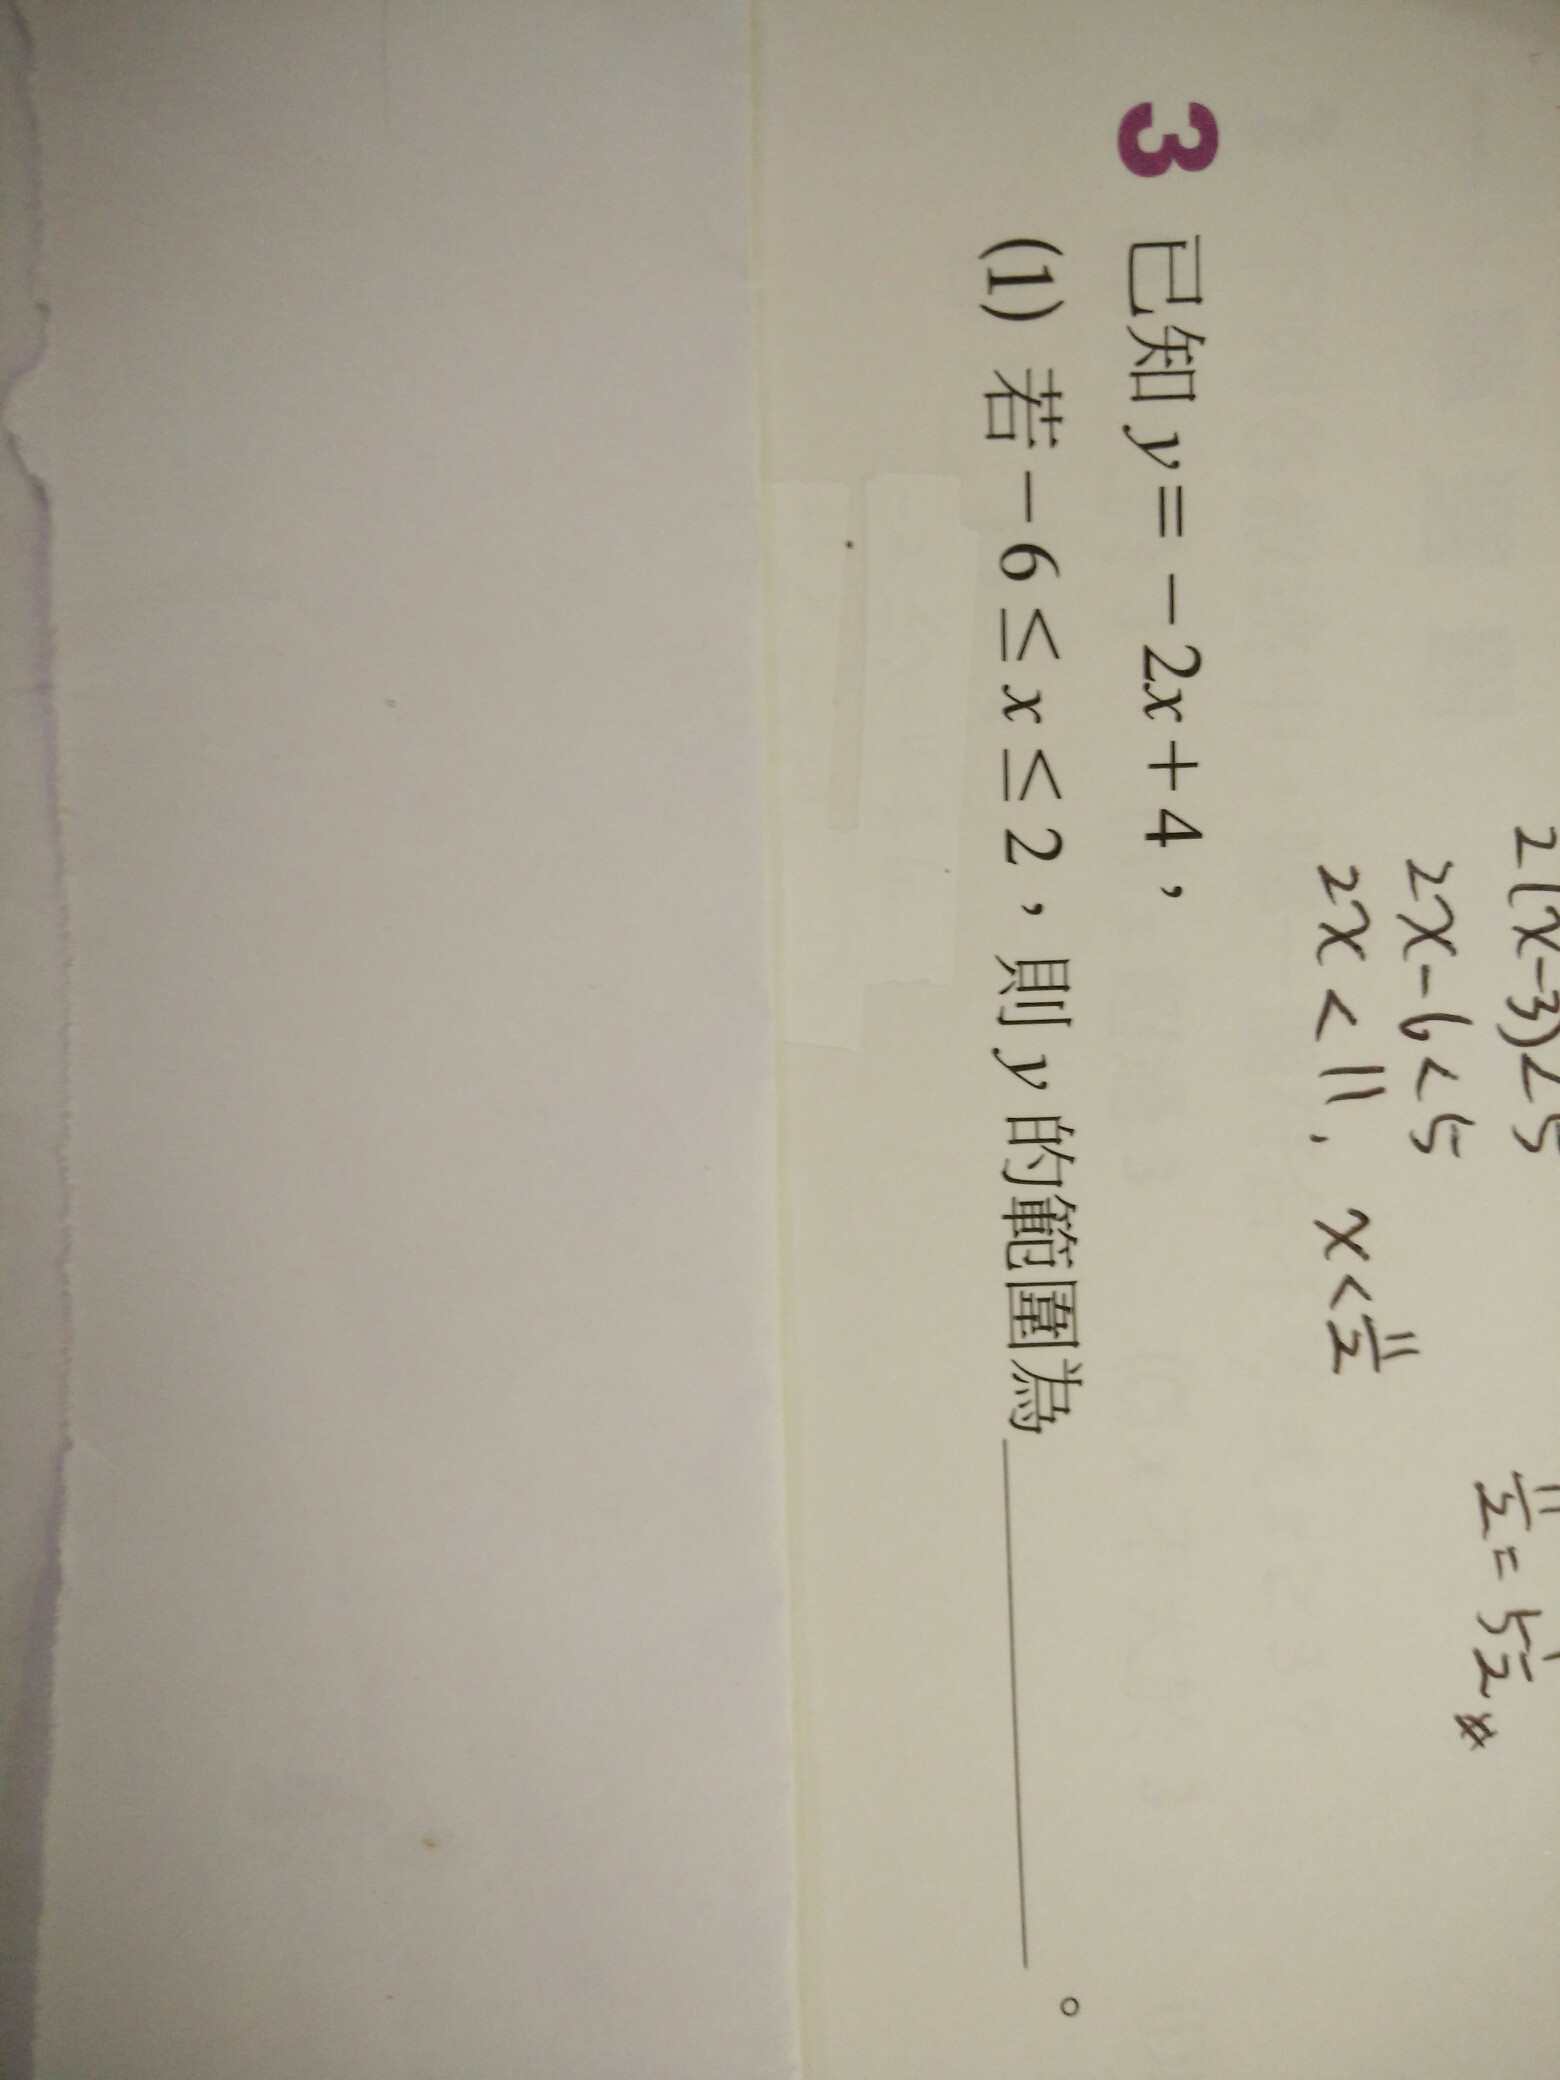 2(x-3)<5
2x-6<5
2x<11, x<11/2
11/2=5 1/2
3 已知 y=-2x+4，
(1) 若 -6≤x≤2，則 y 的範圍為＿＿＿＿＿＿＿＿。